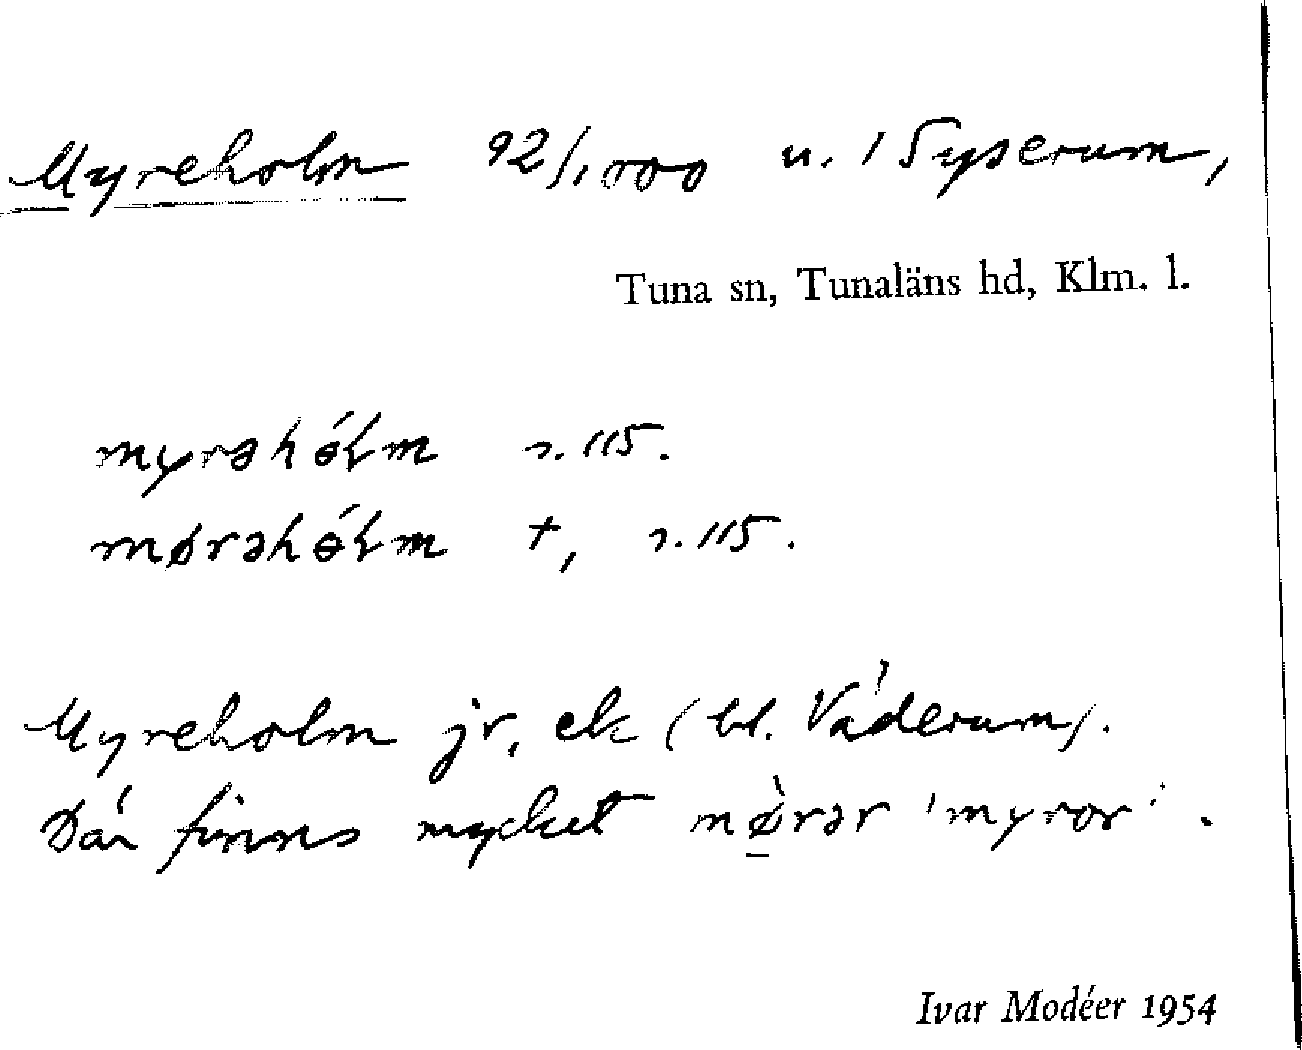 Myreholm 92/1000 u. 1 Syserum,
Tuna sn, Tunaläns hd, Klm. l.
myrəhɵ́lm s. 115.
mørəhɵ́lm †, s. 115.
Myreholm jr, ek (bl. Väderum).
Där finns mycket mø̀rər 'myror'.
Ivar Modéer 1954